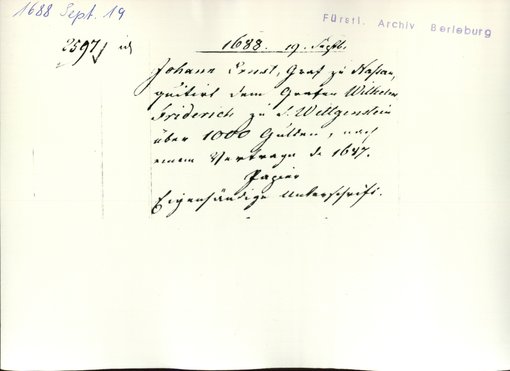 1688 Sept. 19
Fürstl. Archiv Berleburg
2597
1688. 19. Septb.
Johann Ernst, Graf zu Nassau,
quittirt dem Grafen Wilhelm
Friderich zu S. Wittgenstein
über 1000 Gulden, nach
einem Vertrage de 1687.
Papier
Eigenhändige Unterschrift.